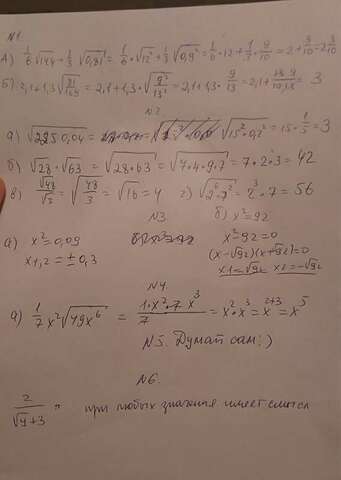 N1
А) 1/6 √144 + 1/3 √0,81 = 1/6 · √12² + 1/3 √0,9² = 1/6 · 12 + 1/3 · 9/10 = 2 + 3/10 = 2 3/10
Б) 2,1 + 1,3 √81/169 = 2,1 + 1,3 · √9²/13² = 2,1 + 1,3 · 9/13 = 2,1 + 9/10 = 3
N2
а) √225·0,04 = √15²·0,2² = 15 · 1/5 = 3
б) √28 · √63 = √28·63 = √7·4·9·7 = 7·2·3 = 42
в) √48/√3 = √48/3 = √16 = 4 г) √2⁶·7² = 2³·7 = 56
N3 б) x² = 92
а) x² = 0,09 x² - 92 = 0
x1,2 = ±0,3 (x-√92)(x+√92) = 0
x1 = √92 x2 = -√92
N4
а) 1/7 x² √49x⁶ = 1·x²·7x³/7 = x²·x³ = x²⁺³ = x⁵
N5. Думай сам:)
N6.
2/√y+3 = при любых значения имеет смысл